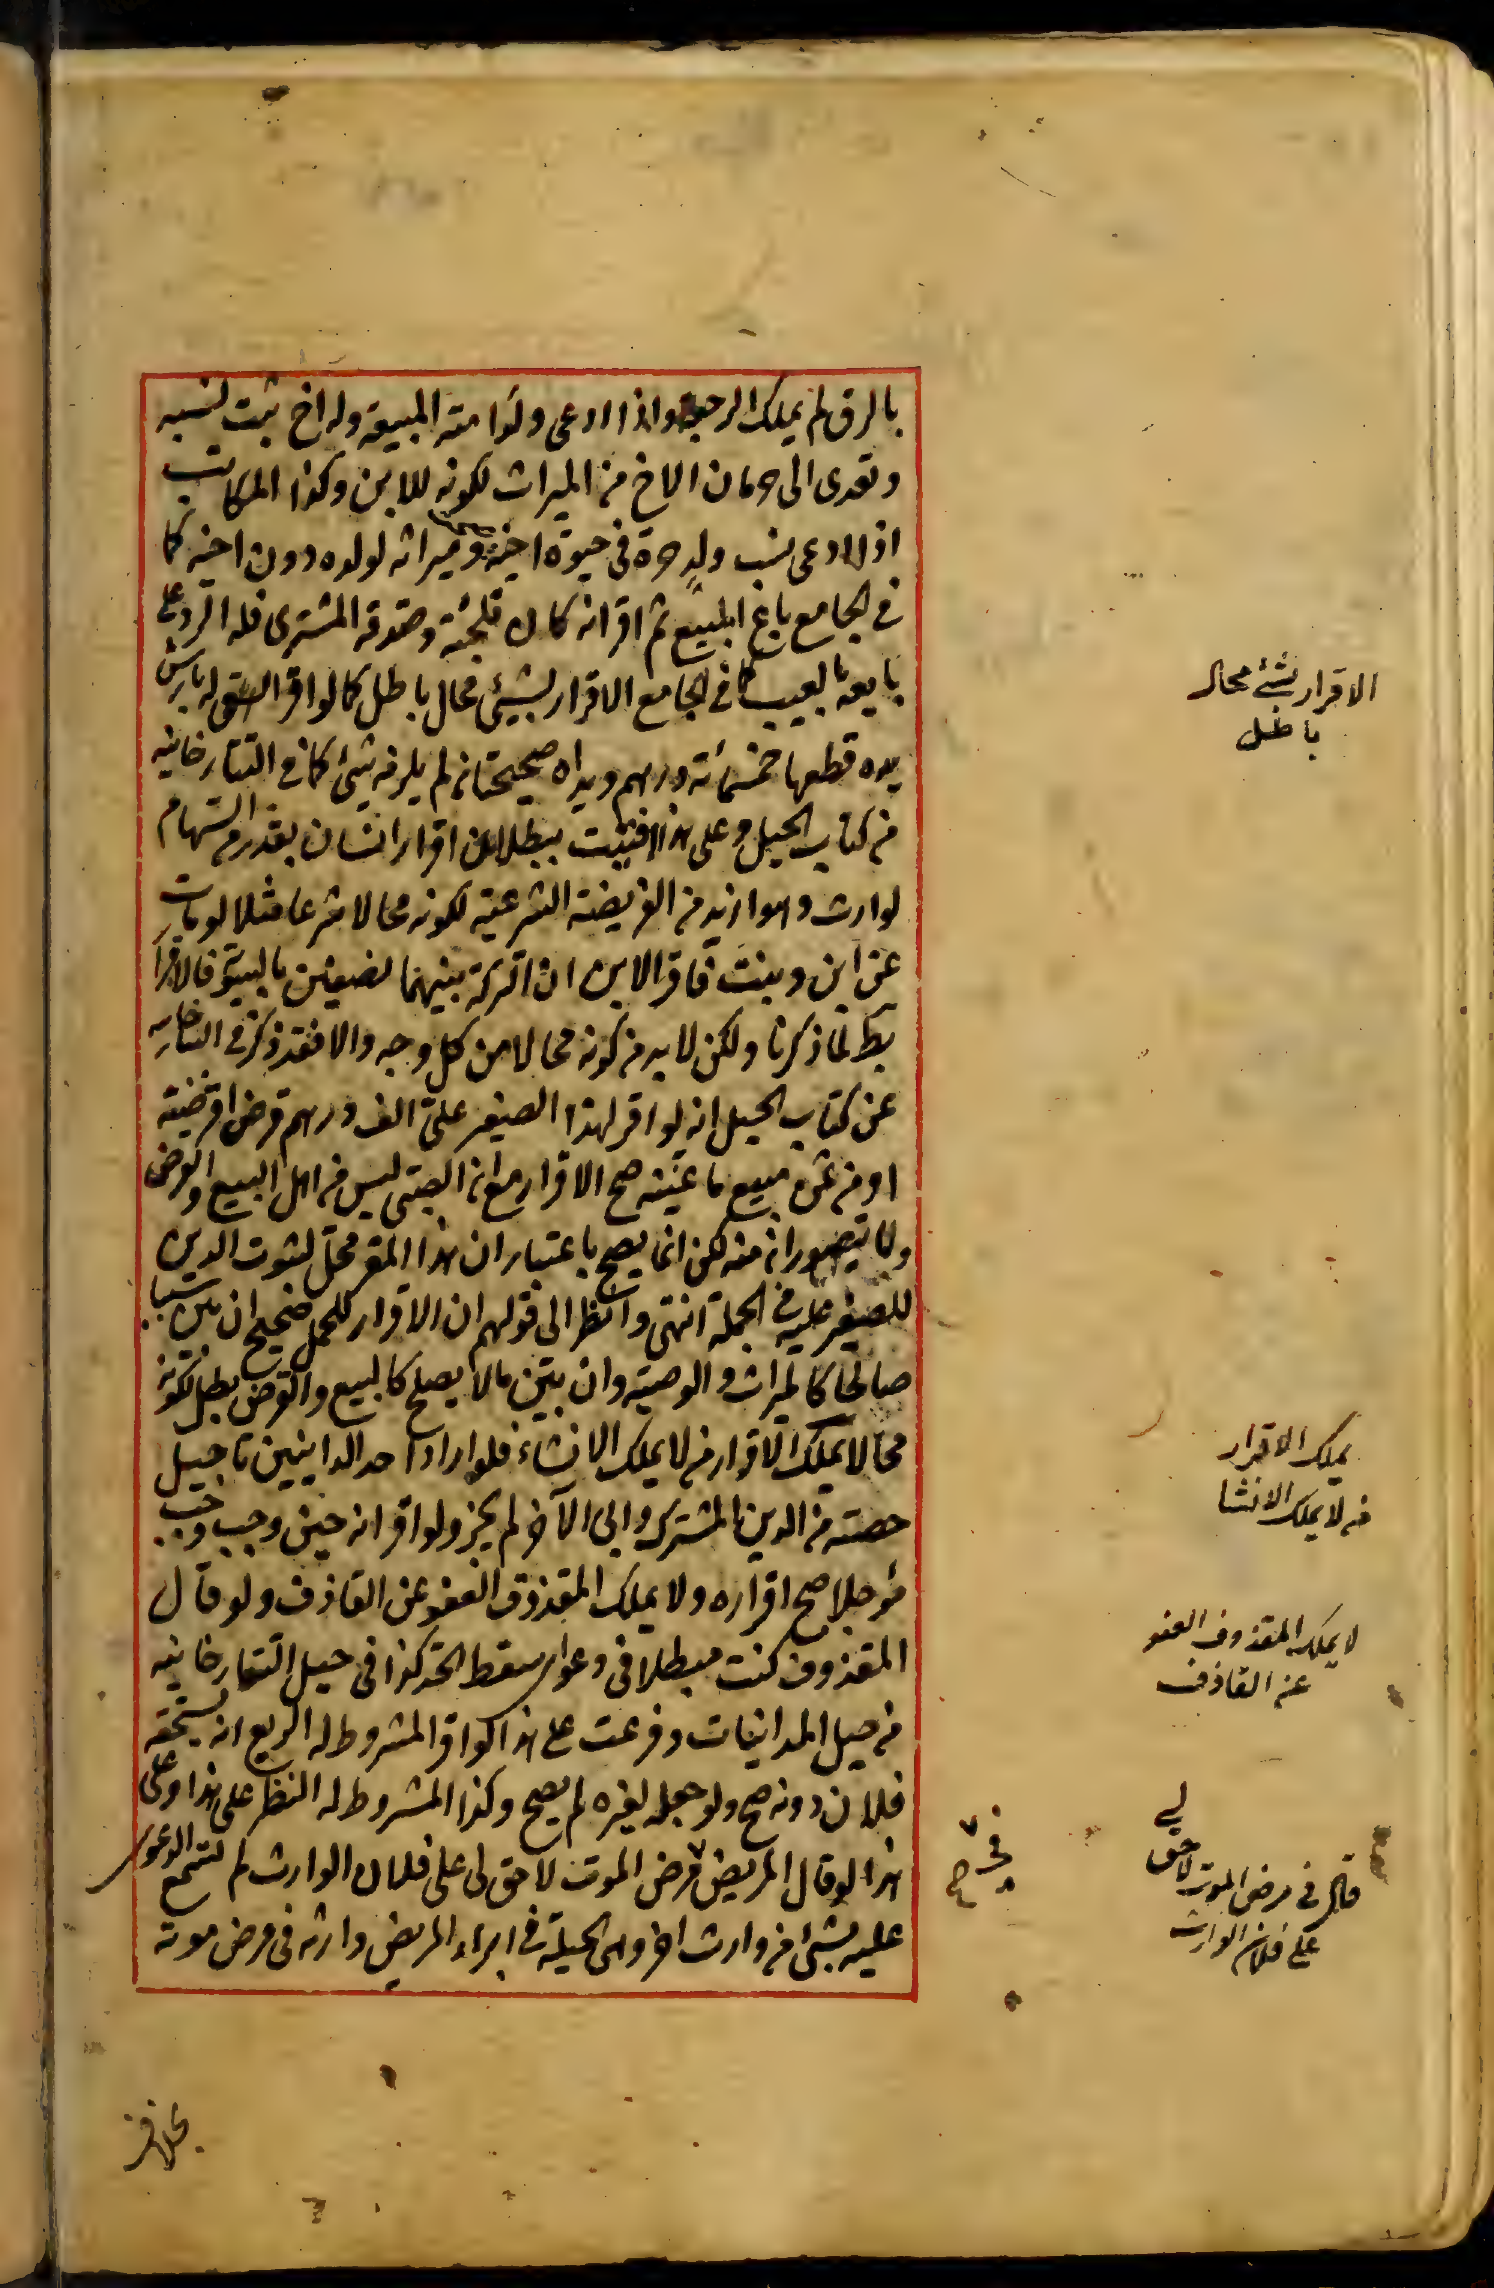 بالرق لم يملك الرجعة واذا ادعى ولد امته المبيعة وله اخ ثبت نسبه
وتعدى الى حرمان الاخ من الميراث لكونه للابن وكذا المكاتب
اذا ادعى نسب ولد حرة في حيوة اخيه وميراثه لولده دون اخيه كما
في الجامع باع المبيع ثم اقر انه كان تلجئة وصدقه المشترى فله الرد على
بايعه بالعيب كما في الجامع الاقرار بشيئ محال باطل كما لو اقر له بارش
يده قطعها خمسمائة درهم ويداه صحيحتان لم يلزمه شيئ كما في التتارخانيه
من كتاب الحيل وعلى هذا افتيت ببطلان اقرار انسان بقدر من السهام
لوارث وهو ازيد من الفريضة الشرعية لكونه محالا شرعا مثلا لو مات
عن ابن وبنت فاقر الابن ان التركة بينهما نصفين بالسوية فالاقرار
بط لما ذكرنا ولكن لا بد من كونه محالا من كل وجه والا فقد ذكر في التتارخانيه
عن كتاب الحيل انه لو اقر لهذا الصغير علىّ الف درهم قرض اقرضنيه
او من ثمن مبيع باعنيه صح الاقرار مع ان الصبى ليس من اهل البيع والقرض
ولا يتصور انه منه لكن انما يصح باعتبار ان هذا المقر محل لثبوت الدين
للصغير عليه في الجملة انتهى وانظر الى قولهم ان الاقرار للحمل صحيح ان بين سببا
صالحا كالميراث والوصية وان بين مالا يصلح كالبيع والقرض بطل لكونه
محالا يملك الاقرار من لا يملك الانشاء فلو اراد احد الداينين تاجيل
حصته من الدين المشترك وابى الآخر لم يجز ولو اقر انه حين وجب وجب
مؤجلا صح اقراره ولا يملك المقذوف العفو عن القاذف ولو قال
المقذوف كنت مبطلا في دعواى سقط الحد كذا في حيل التتارخانيه
من حيل المداينات وفرعت على هذا لو اقر المشروط له الريع انه يستحقه
فلان دونه صح ولو جعله لغيره لم يصح وكذا المشروط له النظر على هذا وعلى
هذا لو قال المريض مرض الموت لا حق لى على فلان الوارث لم تسمع الدعوى
عليه بشئ من وارث اخر وهى الحيلة في ابراء المريض وارثه في مرض موته
الاقرار بشئ محال
باطل
يملك الاقرار
من لا يملك الانشا
لا يملك المقذوف العفو
عن القاذف
قال في مرض الموت لا حق لي
على فلان الوارث
في
صح
بخلاف